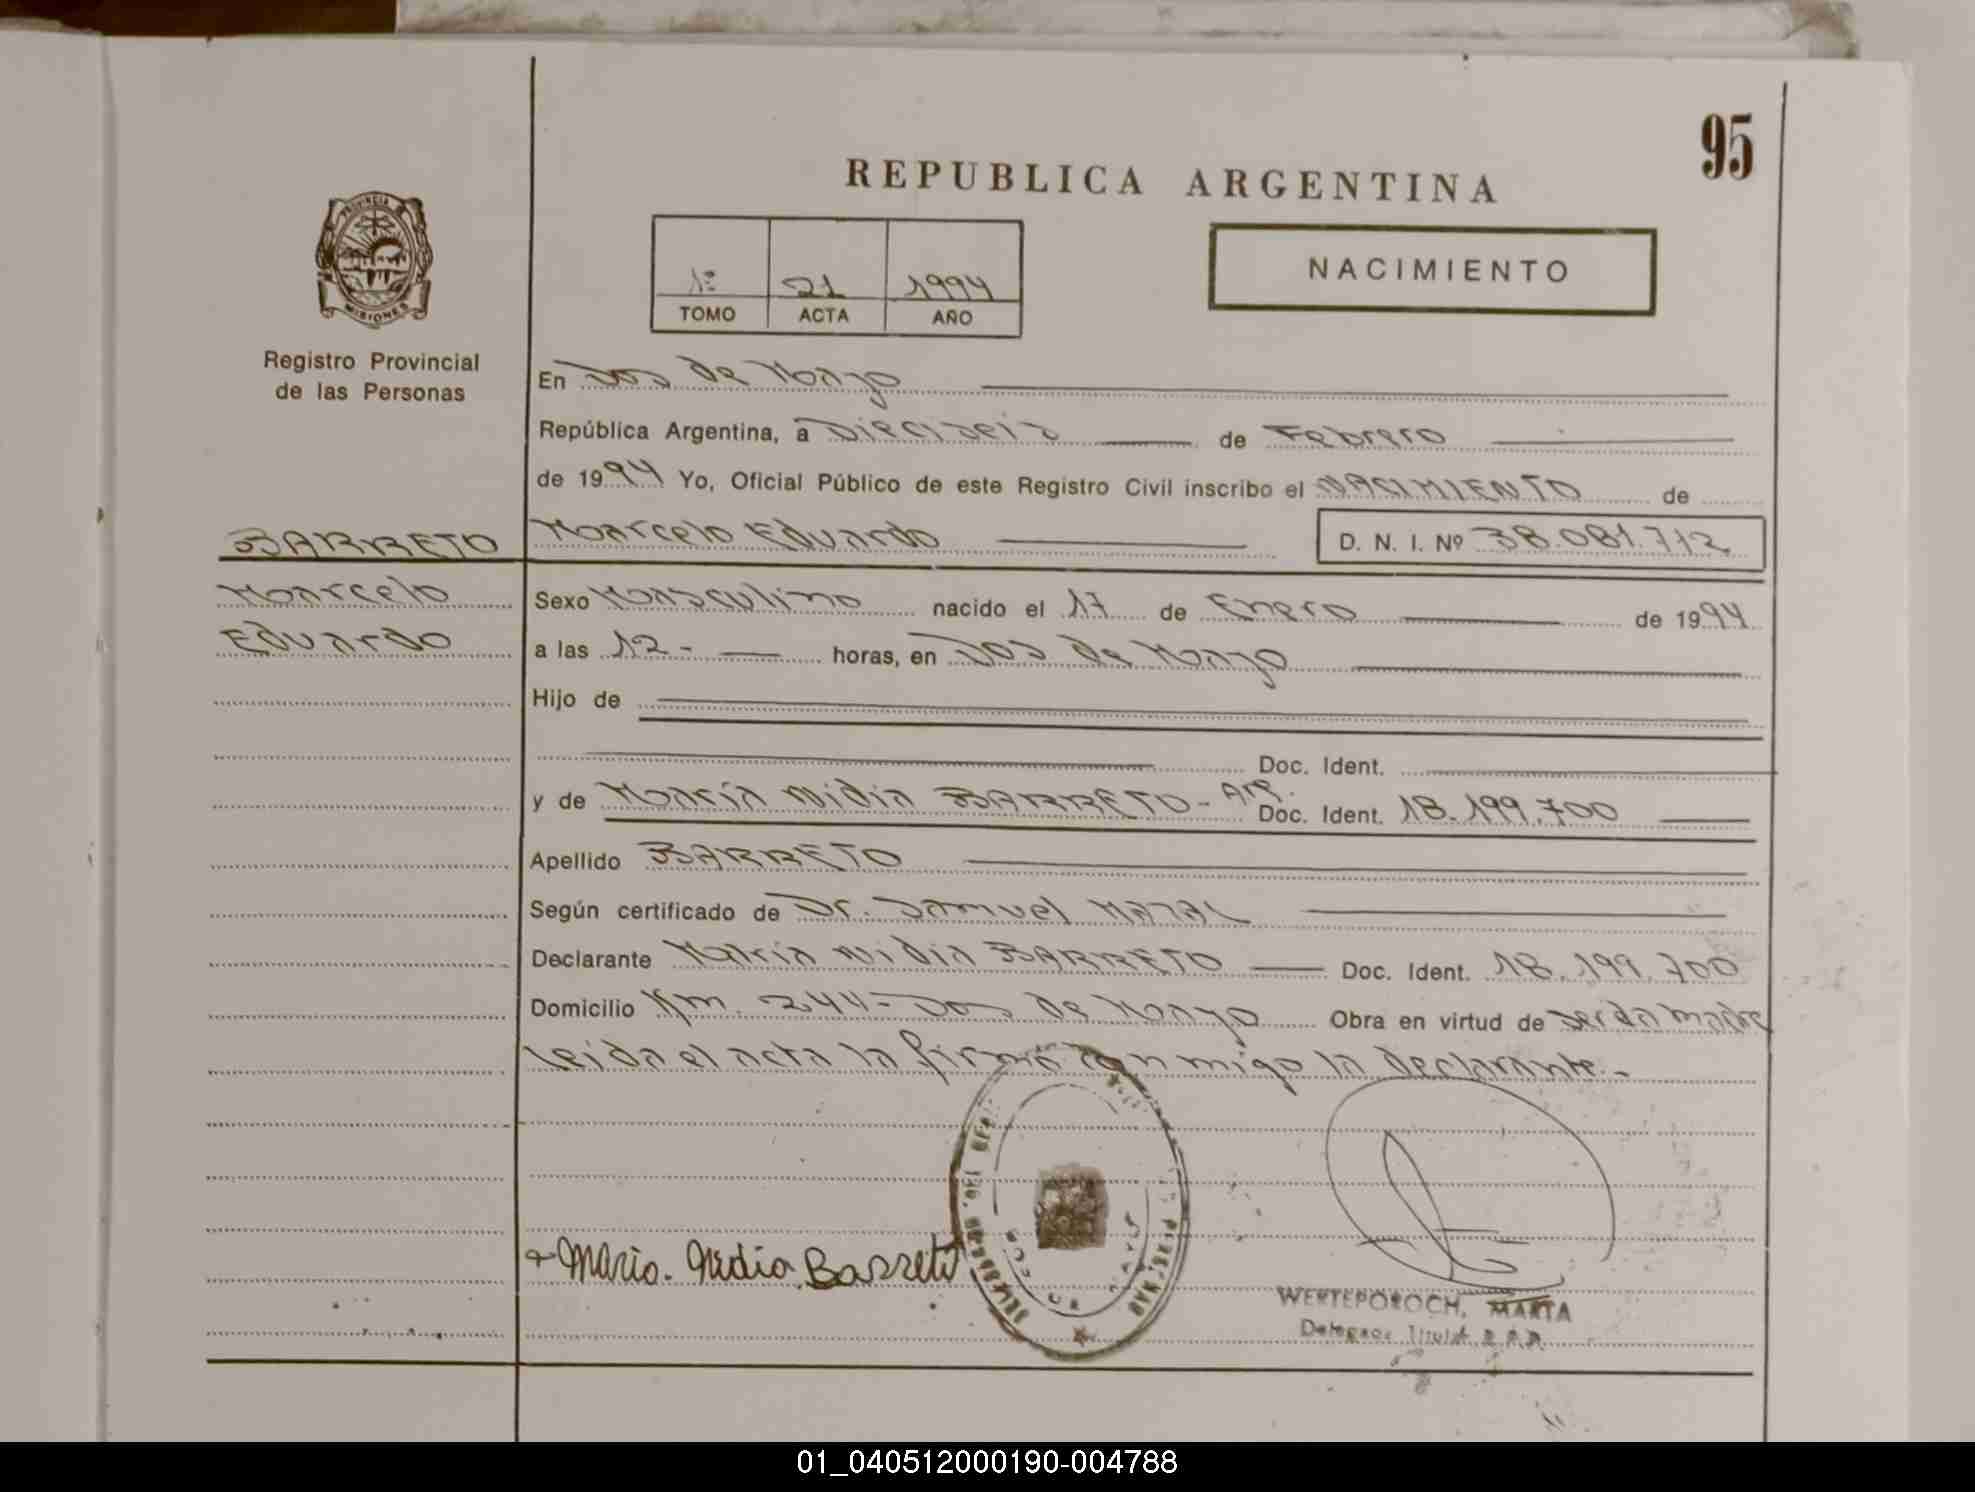 95
REPUBLICA ARGENTINA
PROVINCIA
MISIONES
Registro Provincial
de las Personas
1º 21 1994
TOMO ACTA AÑO
NACIMIENTO
En Dos de Mayo
República Argentina, a Dieciseis de Febrero
de 1994 Yo, Oficial Público de este Registro Civil inscribo el NACIMIENTO de
BARRETO Marcelo Eduardo D. N. I. Nº 38.081.712
Marcelo Sexo Masculino nacido el 17 de Enero de 1994
Eduardo a las 12- horas, en Dos de Mayo
Hijo de
Doc. Ident.
y de María Nidia BARRETO- Arg. Doc. Ident. 18.199.700
Apellido BARRETO
Según certificado de Dr. Samuel
Declarante María Nidia BARRETO Doc. Ident. 18.199.700
Domicilio Km. 244- Dos de Mayo Obra en virtud de ser la madre
Leida el acta la firma conmigo la declarante.-
Maria. Nidia Barreto
WERTEPOROCH, MARTA
01_040512000190-004788